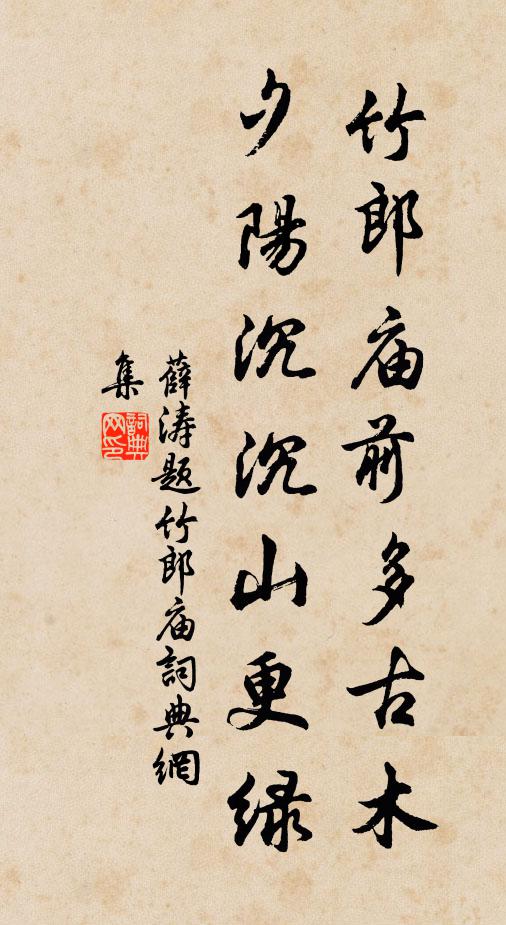 竹郎庙前多古木
夕陽沉沉山更绿
薛涛题竹郎庙詞典網
集
詞典
网印